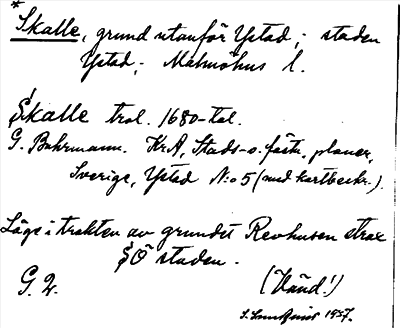 *
Skalle, grund utanför Ystad,- staden
Ystad,- Malmöhus l.
Skalle trol. 1680-tal.
G. Buhrmann. KrA, Stads- o. fästn. planer,
Sverige, Ystad N:o 5 (med kartbeskr.).
Läge i trakten av grundet Revhusen strax
SÖ staden.
G. 2. (Vänd!)
1957.